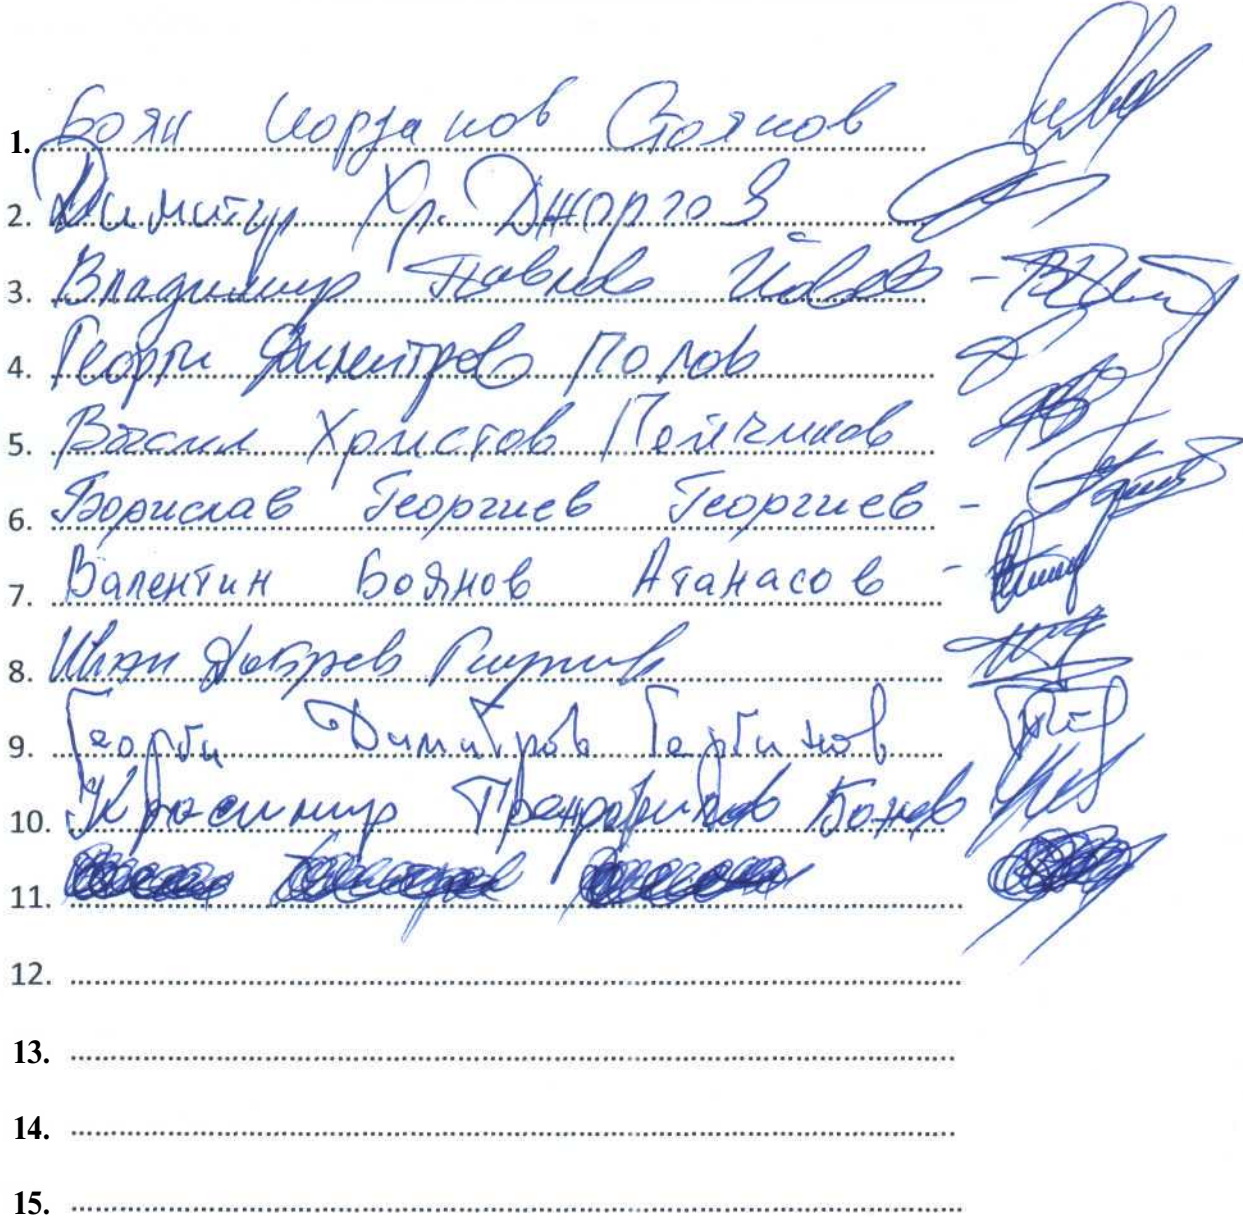 1. Боян Йорданов Стоянов
2. Димитър Хр. Джоргов
3. Владимир Павлов Йовов
4. Георги Димитров Попов
5. Васил Христов
6. Борислав Георгиев Георгиев -
7. Валентин Боянов Атанасов -
8. Иван Добрев
9. Георги Димитров
10. Красимир Божков
11.
12.
13.
14.
15.